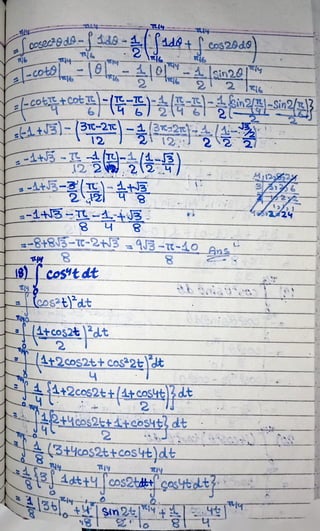 = ∫π/6^π/4 cosec²θdθ - ∫π/6^π/4 1dθ - 1/2 (∫π/6^π/4 1dθ + ∫π/6^π/4 cos2θdθ)
= |-cotθ|π/6^π/4 - |θ|π/6^π/4 - 1/2 |θ|π/6^π/4 - 1/2 |sin2θ/2|π/6^π/4
= (-cotπ/4 + cotπ/6) - (π/4 - π/6) - 1/2 (π/4 - π/6) - 1/2 (sin2(π/4)/2 - sin2(π/6)/2)
= (-1+√3) - (3π-2π/12) - 1/2 (3π-2π/12) - 1/2 (1/2 - √3/2/2)
= -1+√3 - π/12 - 1/2 (π/12) - 1/2 (1/2 - √3/4)
= -1+√3 - 3/2 (π/12) - 1/4 + √3/8
= -1+√3 - π/8 - 1/4 + √3/8
= -8+8√3-π-2+√3/8 = 9√3-π-10/8 Ans
18) ∫0^π/4 cos⁴t dt
= ∫0^π/4 (cos²t)² dt
= ∫0^π/4 (1+cos2t/2)² dt
= ∫0^π/4 (1+2cos2t+cos²2t/4)² dt
= ∫0^π/4 1/4 {1+2cos2t+(1+cos4t/2)} dt
= ∫0^π/4 1/4 {2+4cos2t+1+cos4t/2} dt
= ∫0^π/4 1/8 (3+4cos2t+cos4t) dt
= 1/8 {3∫0^π/4 1dt + 4∫0^π/4 cos2tdt + ∫0^π/4 cos4tdt}
= 1/8 |3t|0^π/4 + 4/8 |sin2t/2|0^π/4 + 1/8